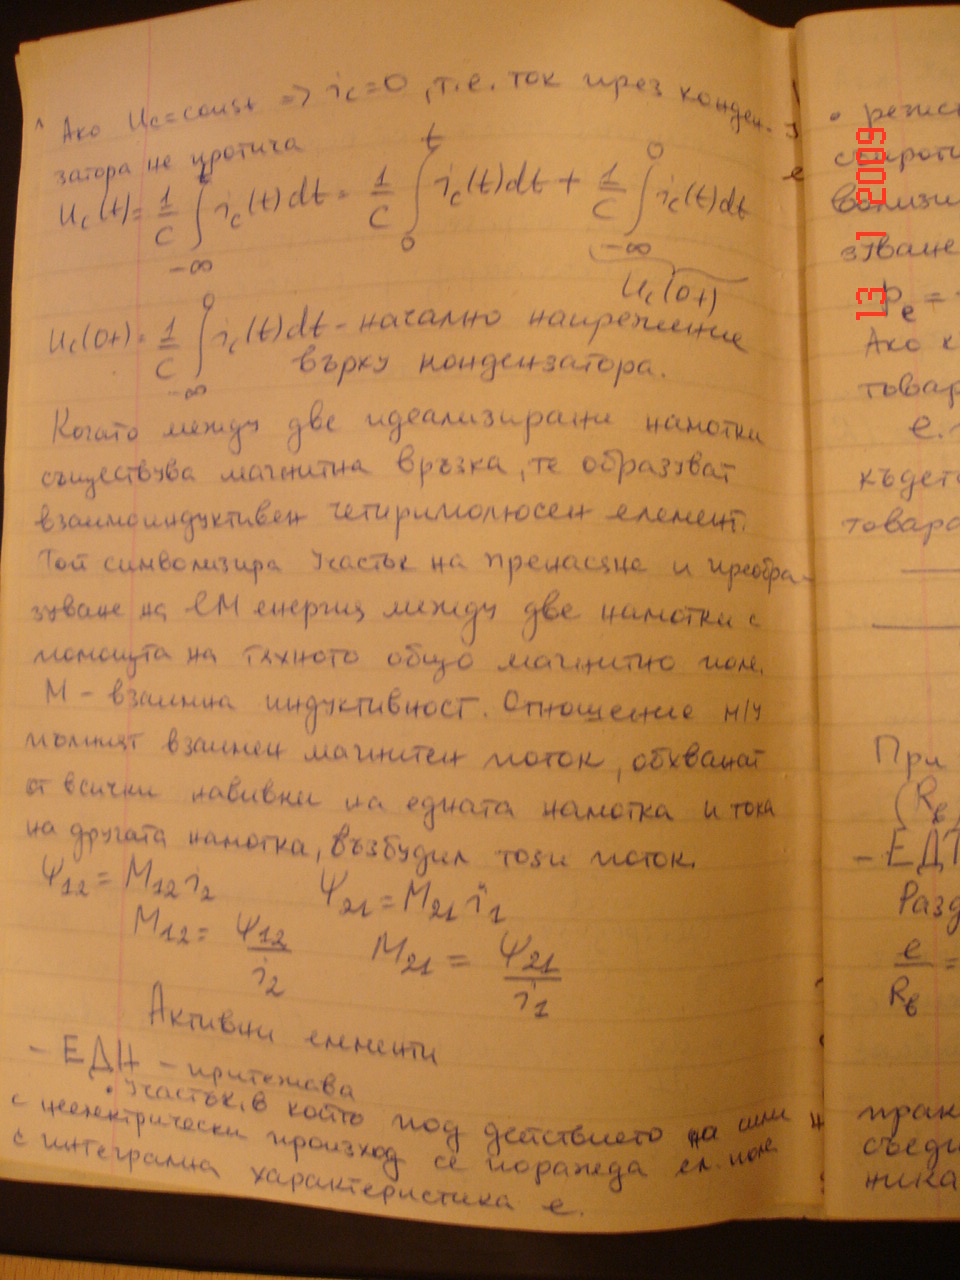 Ако Uc=const => ic=0, т.е. ток през конден-
затора не протича
Uc(t)= 1/C ∫_{-∞}^{t} ic(t)dt = 1/C ∫_{0}^{t} ic(t)dt + 1/C ∫_{-∞}^{0} ic(t)dt
Uc(0+)
Uc(0+)= 1/C ∫_{-∞}^{0} ic(t)dt - начално напрежение
върху кондензатора.
Когато между две идеализирани намотки
съществува магнитна връзка, те образуват
взаимоиндуктивен четириполюсен елемент.
Той символизира участък на пренасяне и преобра-
зуване на ЕМ енергия между две намотки с
помощта на тяхното общо магнитно поле.
М - взаимна индуктивност. Отношение м/у
пълният взаимен магнитен поток, обхванат
от всички навивки на едната намотка и тока
на другата намотка, възбудил този поток.
Ψ12 = M12 i2   Ψ21 = M21 i1
M12 = Ψ12/i2   M21 = Ψ21/i1
Активни елементи
- ЕДН - притежава
• Участък, в който под действието на сили
с неелектрически произход се поражда ел. поле
с интегрална характеристика e.
• резис
съпроти
зуване
Pe =
Ако
товар
e.
къдет
товара
При
(Rв
- ЕДТ
Разд
e/Rв =
прак
съеди
ника
13 1 2009